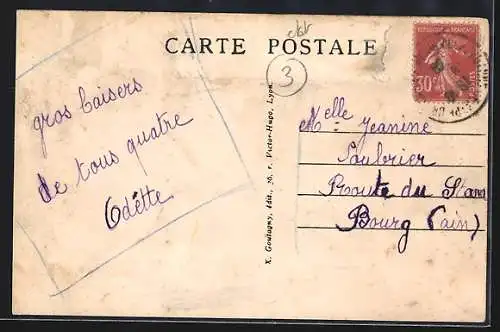 CARTE POSTALE
3
REPUBLIQUE FRANÇAISE
30c
POSTES
gros baisers
de tous quatre
Odette
X. Goutagny, édit., 20, r. Victor-Hugo, Lyon
Melle Jeanine
Saubrier
Route du
Bourg (ain)